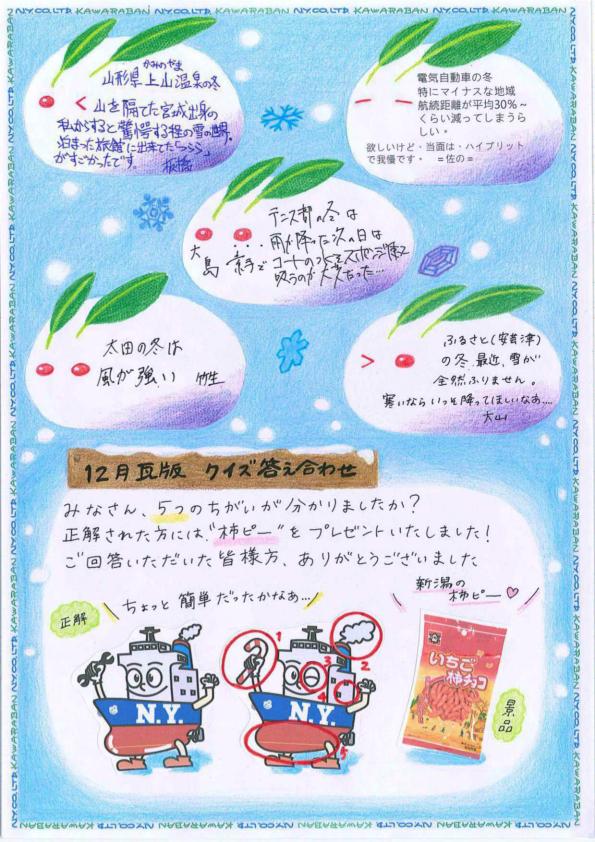 N.Y.CO.,LTD. KAWARABAN N.Y.CO.,LTD. KAWARABAN N.Y.CO.,LTD. KAWARABAN
かみのやま
山形県 上山温泉の冬
山を隔てた宮城出身の
私からすると驚愕する程の雪の世界。
泊まった旅館に出来てたつららが
すごかったです。 板橋
電気自動車の冬
特にマイナスな地域
航続距離が平均30%~
くらい減ってしまうら
しい・
欲しいけど・当面は・ハイブリット
で我慢です・ =佐の=
テニス部の冬は
雨が降った次の日は
コートの水をスポンジで
吸うのが大変だった…
大島
太田の冬は
風が強い 竹生
ふるさと(安芸津)
の冬、最近、雪が
全然ふりません。
寒いならいっそ降ってほしいなあ…
大山
12月瓦版 クイズ答え合わせ
みなさん、5つのちがいが分かりましたか?
正解された方には、"柿ピー"をプレゼントいたしました!
ご回答いただいた皆様方、ありがとうございました
正解
ちょっと簡単だったかなあ…
新潟の
柿ピー♡
1
2
3
4
5
N.Y.
N.Y.
いちご
柿チョコ
景品